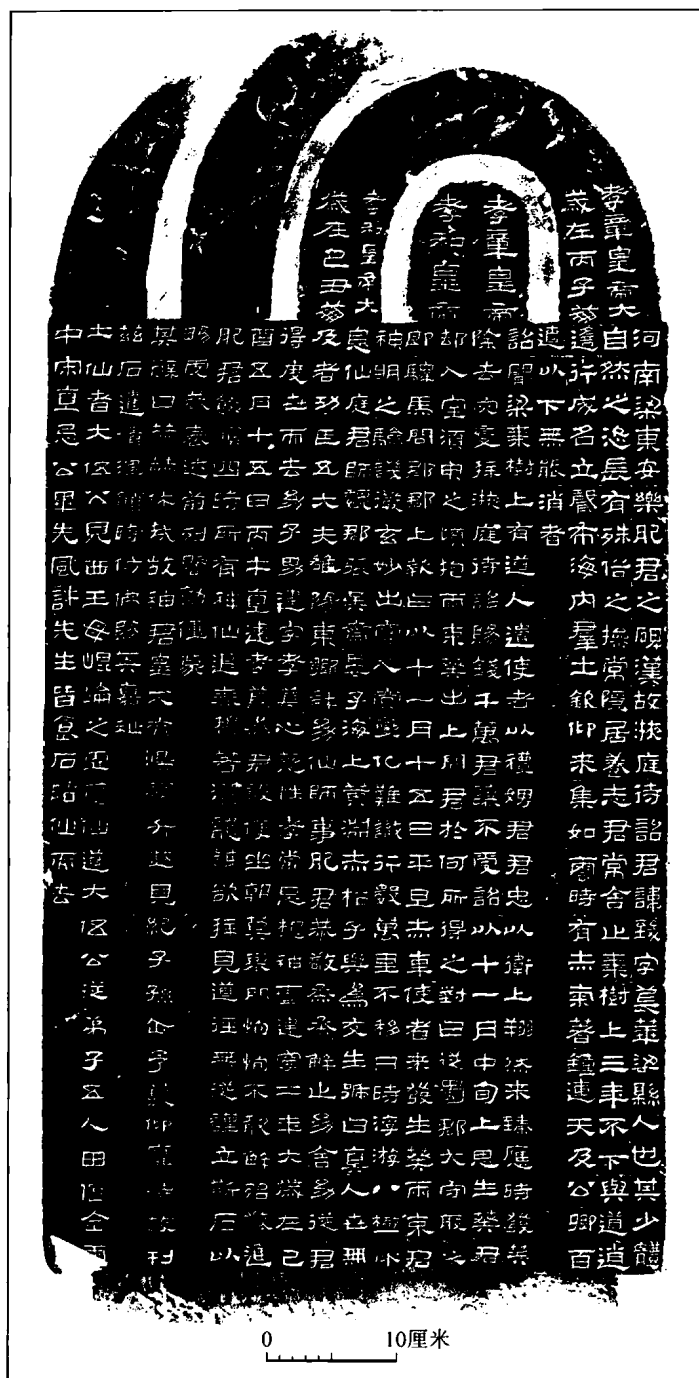 孝章皇帝大
歲在丙子崩
孝章皇帝
孝和皇帝
孝和皇帝大
歲在己丑崩
河南梁東安樂肥君之碑漢故掖庭待詔君諱致字萇華梁縣人也其少體
自然之恣長有殊俗之操常隱居養志君常舍止棗樹上三年不下與道逍
遙行成名立聲布海內羣士欽仰來集如雲時有赤氣著鐘連天及公卿百
遼以下無能消者
詔聞梁棗樹上有道人遣使者以禮娉君君忠以衛上翔然來臻應時發筭
除去災變拜掖庭待詔賜錢千萬君讓不受詔以十一月中旬上思生葵君
却入室須臾之頃抱兩束葵出上問君於何所得之對曰從蜀郡大守取之
即驛馬問郡郡上報曰以十一月十五日平旦赤車使者來發生葵兩束君
神明之驗譏徹玄妙出窈入冥變化難識行數萬里不移日時浮游八極休
息仙庭君師魏郡張吳齊晏子海上黃淵赤松子與為友生號曰真人世無
及者功臣五大夫雒陽東鄉許幼仰師事肥君恭敬烝烝解止幼舍幼從君
得度世而去幼子男建字孝萇心慈性孝常思想神靈建寧二年大歲在己
酉五月十五日丙午直建孝萇為君設便坐朝莫舉門恂恂不敢解殆敬進
肥君餟順四時所有神仙退泰穆若潛龍雖欲拜見道徑無從謹立斯石以
暢虔恭表述前列啟勸僮蒙
其辭曰赫赫休哉故神君皇又有鴻稱升遐見紀子孫企予慕仰靡恃故刊
茲石達情理願時仿佛賜其嘉祉
土仙者大伍公見西王母崐崙之虛受仙道大伍公從弟子五人田傴全雨
中宋直忌公畢先風許先生皆食石脂仙而去
0 10厘米